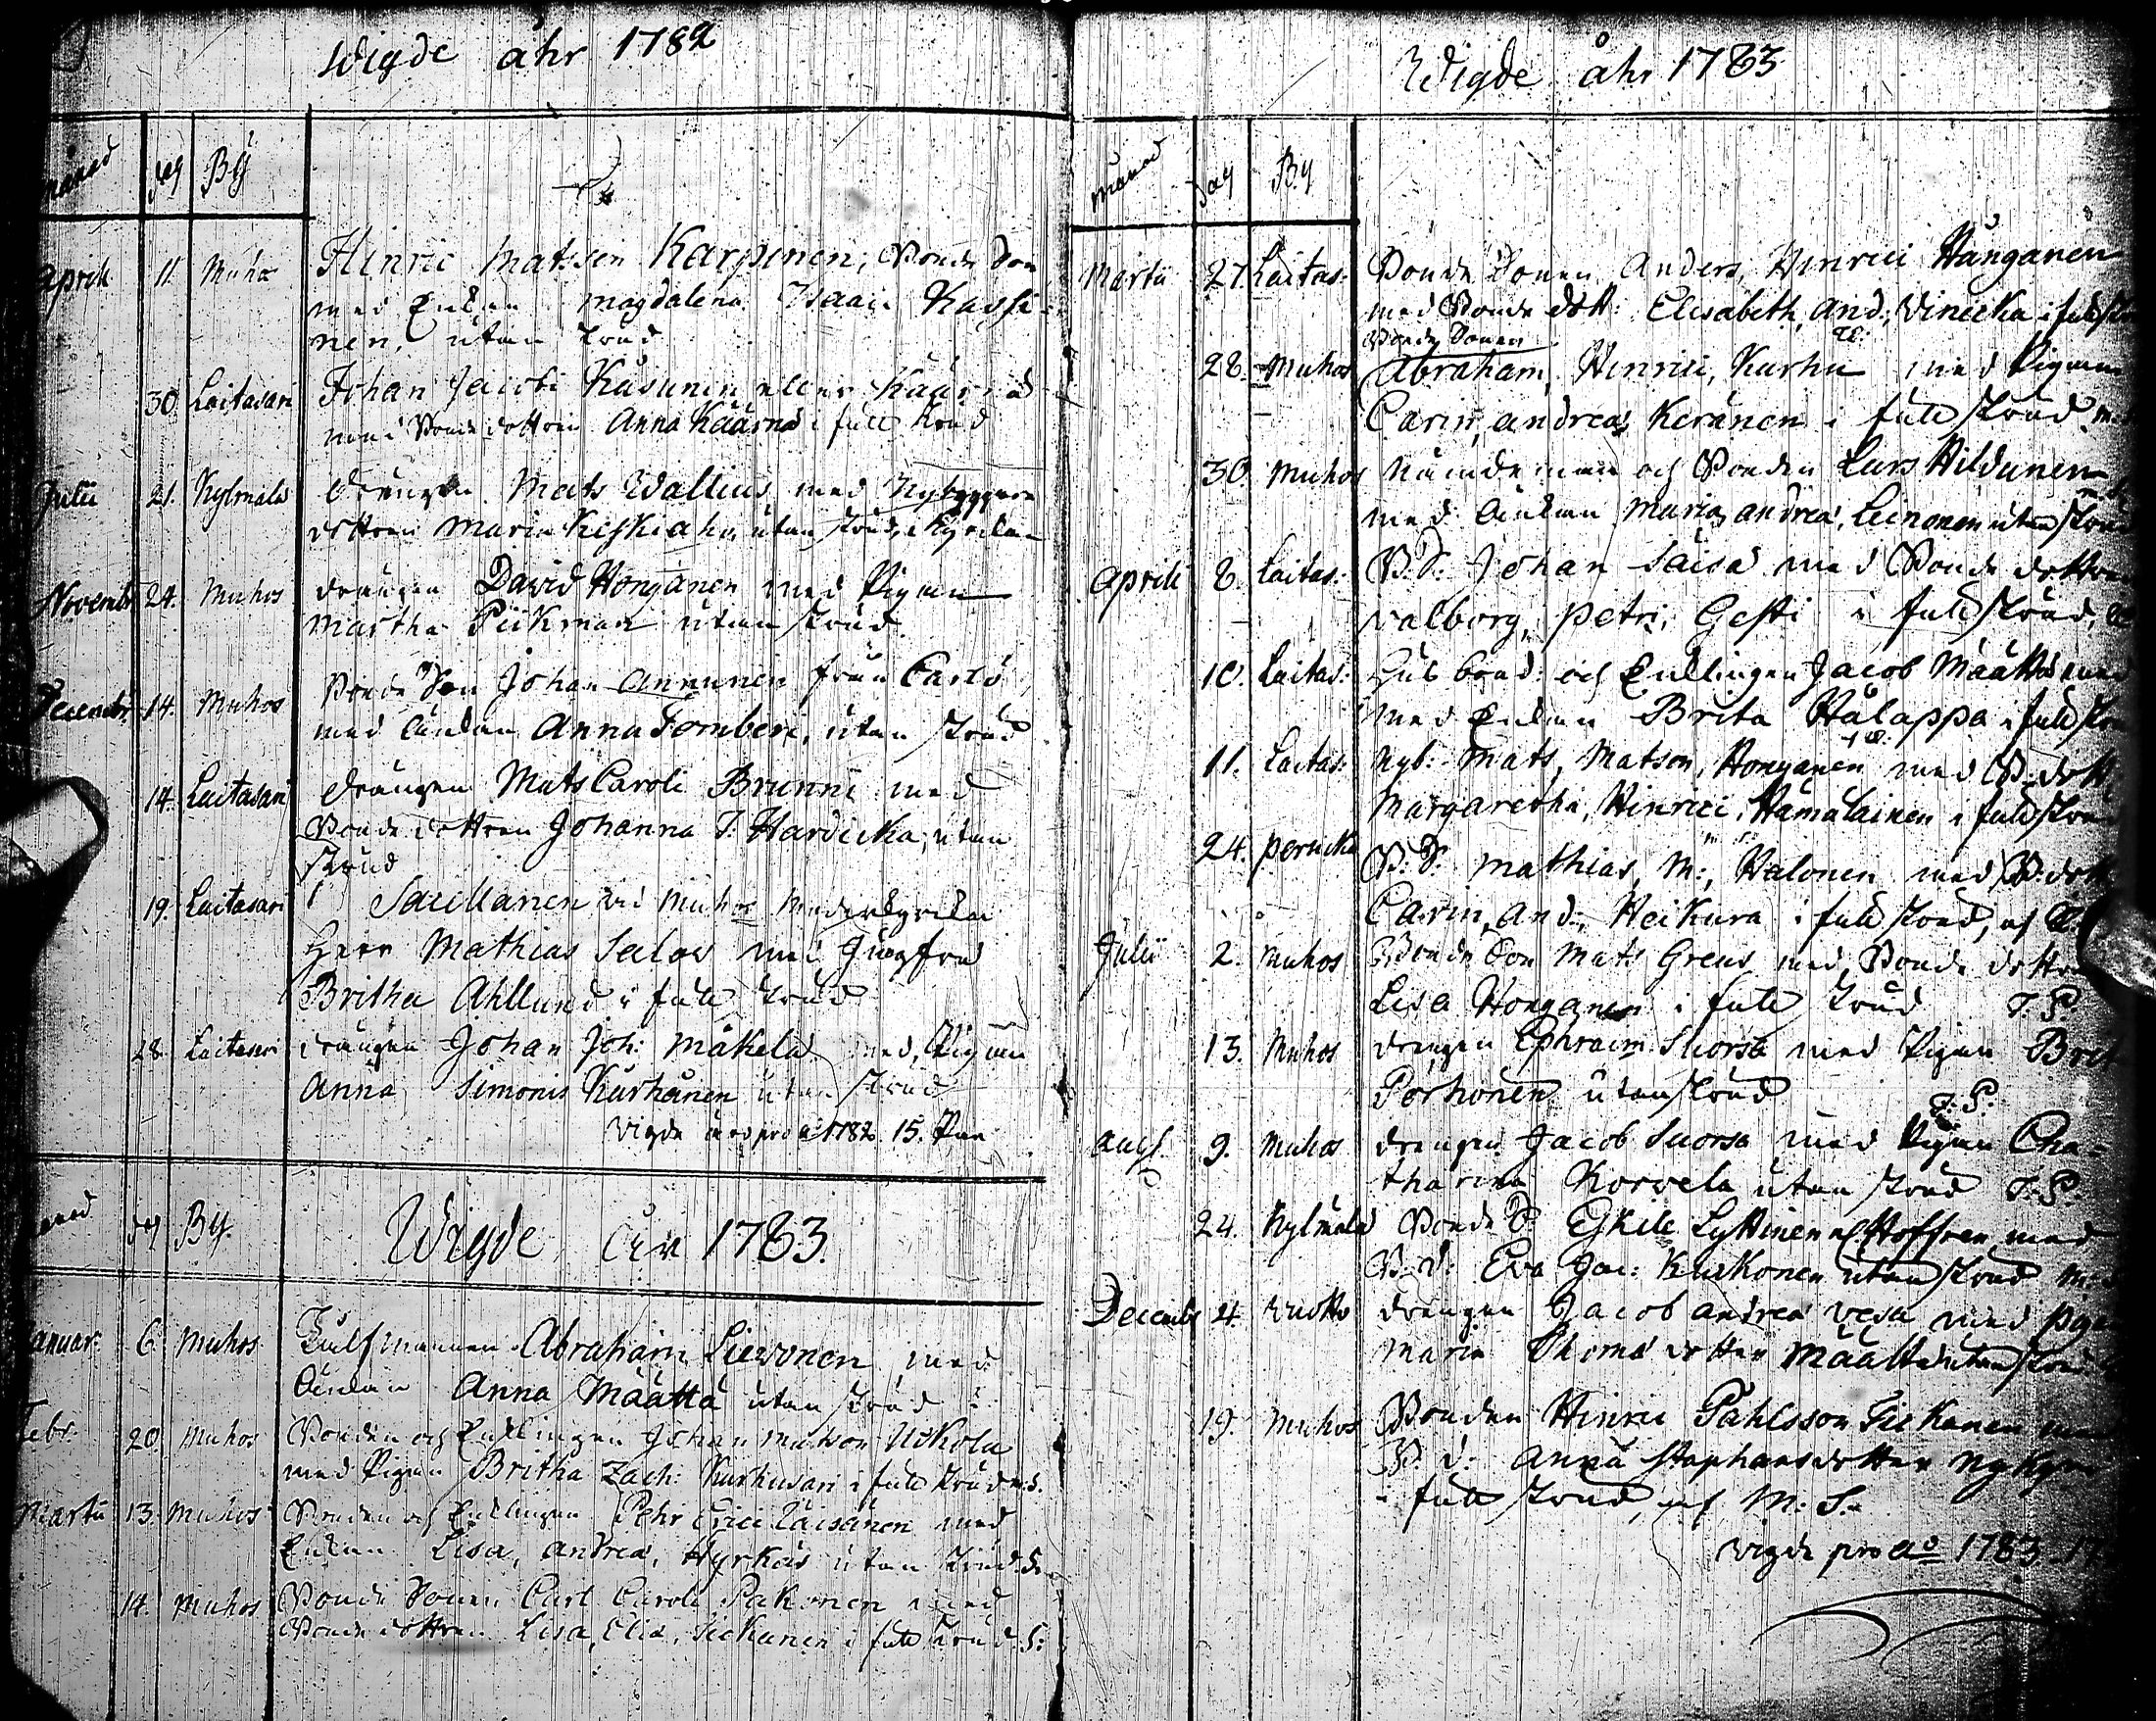 Wigde åhr 1782
månad dag By
Aprill 11. Muhos Hinric Matsson Karpinen, Bonde Son
med Enkan Magdalena Isaaci Kassi-
nen, utan krud
30 Laitasari Johan Jacobi Kasunen eller Käärnä
med Bonde dottren Anna Käärnä i full krud
Julii 21. Kylmälä Drängen Mats Wallius med Nybyggare
dottren Maria Keskiaho, utan krud, i kyrckan
Novembr 24. Muhos drängen David Hongänen med Pigan
Martha Piikman utan krud.
Decembr 14. Muhos Bonde Son Johan Annunen från Carlö
med änkan Anna Fomberi, utan krud
14. Laitasari drängen Mats Caroli Brunni med
Bonde dottren Johanna J: Hardicka, utan
krud
19. Laitasari Saillanen vid Muhos moderkyrcka
Herr Mathias Selow med Jungfru
Britha Ahllund i full krud
28. Laitasari drängen Johan Joh: Mäkelä med Pigan
Anna Simonis Kurhanen utan krud
Vigde äro pro a: 1782. 15. Par
månad dag By. Wigde åhr 1783.
Januar: 6 Muhos Inhysmannen Abraham Liewonen med
änkan Anna Määttä utan krud
Febr. 20. Muhos Bonden och Enklingen Johan Matson Uckola
med Pigan Britha Zach: Karhusari i full krud
Martii 13. Muhos Bonden och Enklingen Pehr Erici Räisänen med
Enkan Lisa, Andreæ, Hyrkäs utan krud
14. Muhos Bonde Sonen Carl Caroli Pakonen med
Bonde dottren Lisa, Eliæ, Tickanen i full krud
Wigde åhr 1783
månad dag By
Martii 27. Laitas: Bonde Sonen Anders, Hinrici Hånganen
med Bonde dott: Elisabeth, And:, Vinicka i full krud
Bonde Sonen
28. Muhos Abraham, Hinrici, Kurhu med Pigan
Carin, Andreæ, Keränen i full krud
30. Muhos Nämdeman och Bonden Lars Hildunen
med änkan Maria, Andreæ, Leinonen utan krud
Aprill 8. Laitas: B. S: Johan Säisä med Bonde dottren
Valborg, Petri, Gesti i full krud,
10. Laitas: Husbond: och Enklingen Jacob Määttä
med Enkan Brita Hålappa i full krud
11. Laitas: Nyb: Mats, Matson, Honganen med B: dott
Margaretha, Hinrici, Hämäläinen i full krud
24. Perucka B: S: Mathias, M:, Halonen med B: dott
Carin, And:, Heikura i full krud, af
Julii 2. Muhos Bonde Son Mats Greus med Bonde dottren
Lisa Honganen i full krud J. P.
13. Muhos drängen Ephraim Suorsa med Pigan Brit
Porhonen utan krud J: P:
Aug. 9. Muhos drängen Jacob Suorsa med Pigan Cha-
tharina Korvela utan krud J: P.
24. Kylmälä Bonde S: Eskill Lyttinen af Hoffren med
B: d: Eva Jac: Kukkonen utan krud
Decembr 4. Utotto drängen Jacob Andreæ Vesa med Pigan
Maria Thomæ dotter Määttä utan krud
19. Muhos Bonden Hinric Påhlsson Tickanen med
B: d: Anna Staphansdotter Nykyri
i full krud, af M: S:
Vigde pro ao 1783 17